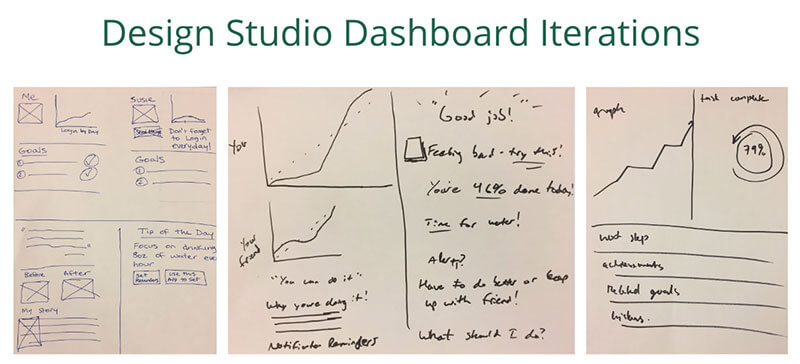 Design Studio Dashboard Iterations
Me
Login by Day
Susie
Don't forget
to Login
everyday!
Goals
1
2
Goals
1
2
Before
After
My Story
Tip of the Day
Focus on drinking
8oz of water every
hour
Set
Reminder
Use this
App to Set
You
Your
friend
"You can do it"
Why you're doing it!
Notification Reminders
"Good job!
Feeling bad - try this!
You're 46% done today!
Time for water!
Alerts?
Have to do better or keep
up with friend!
What should I do?
graph
task complete
79%
next step
achievements
related goals
history.